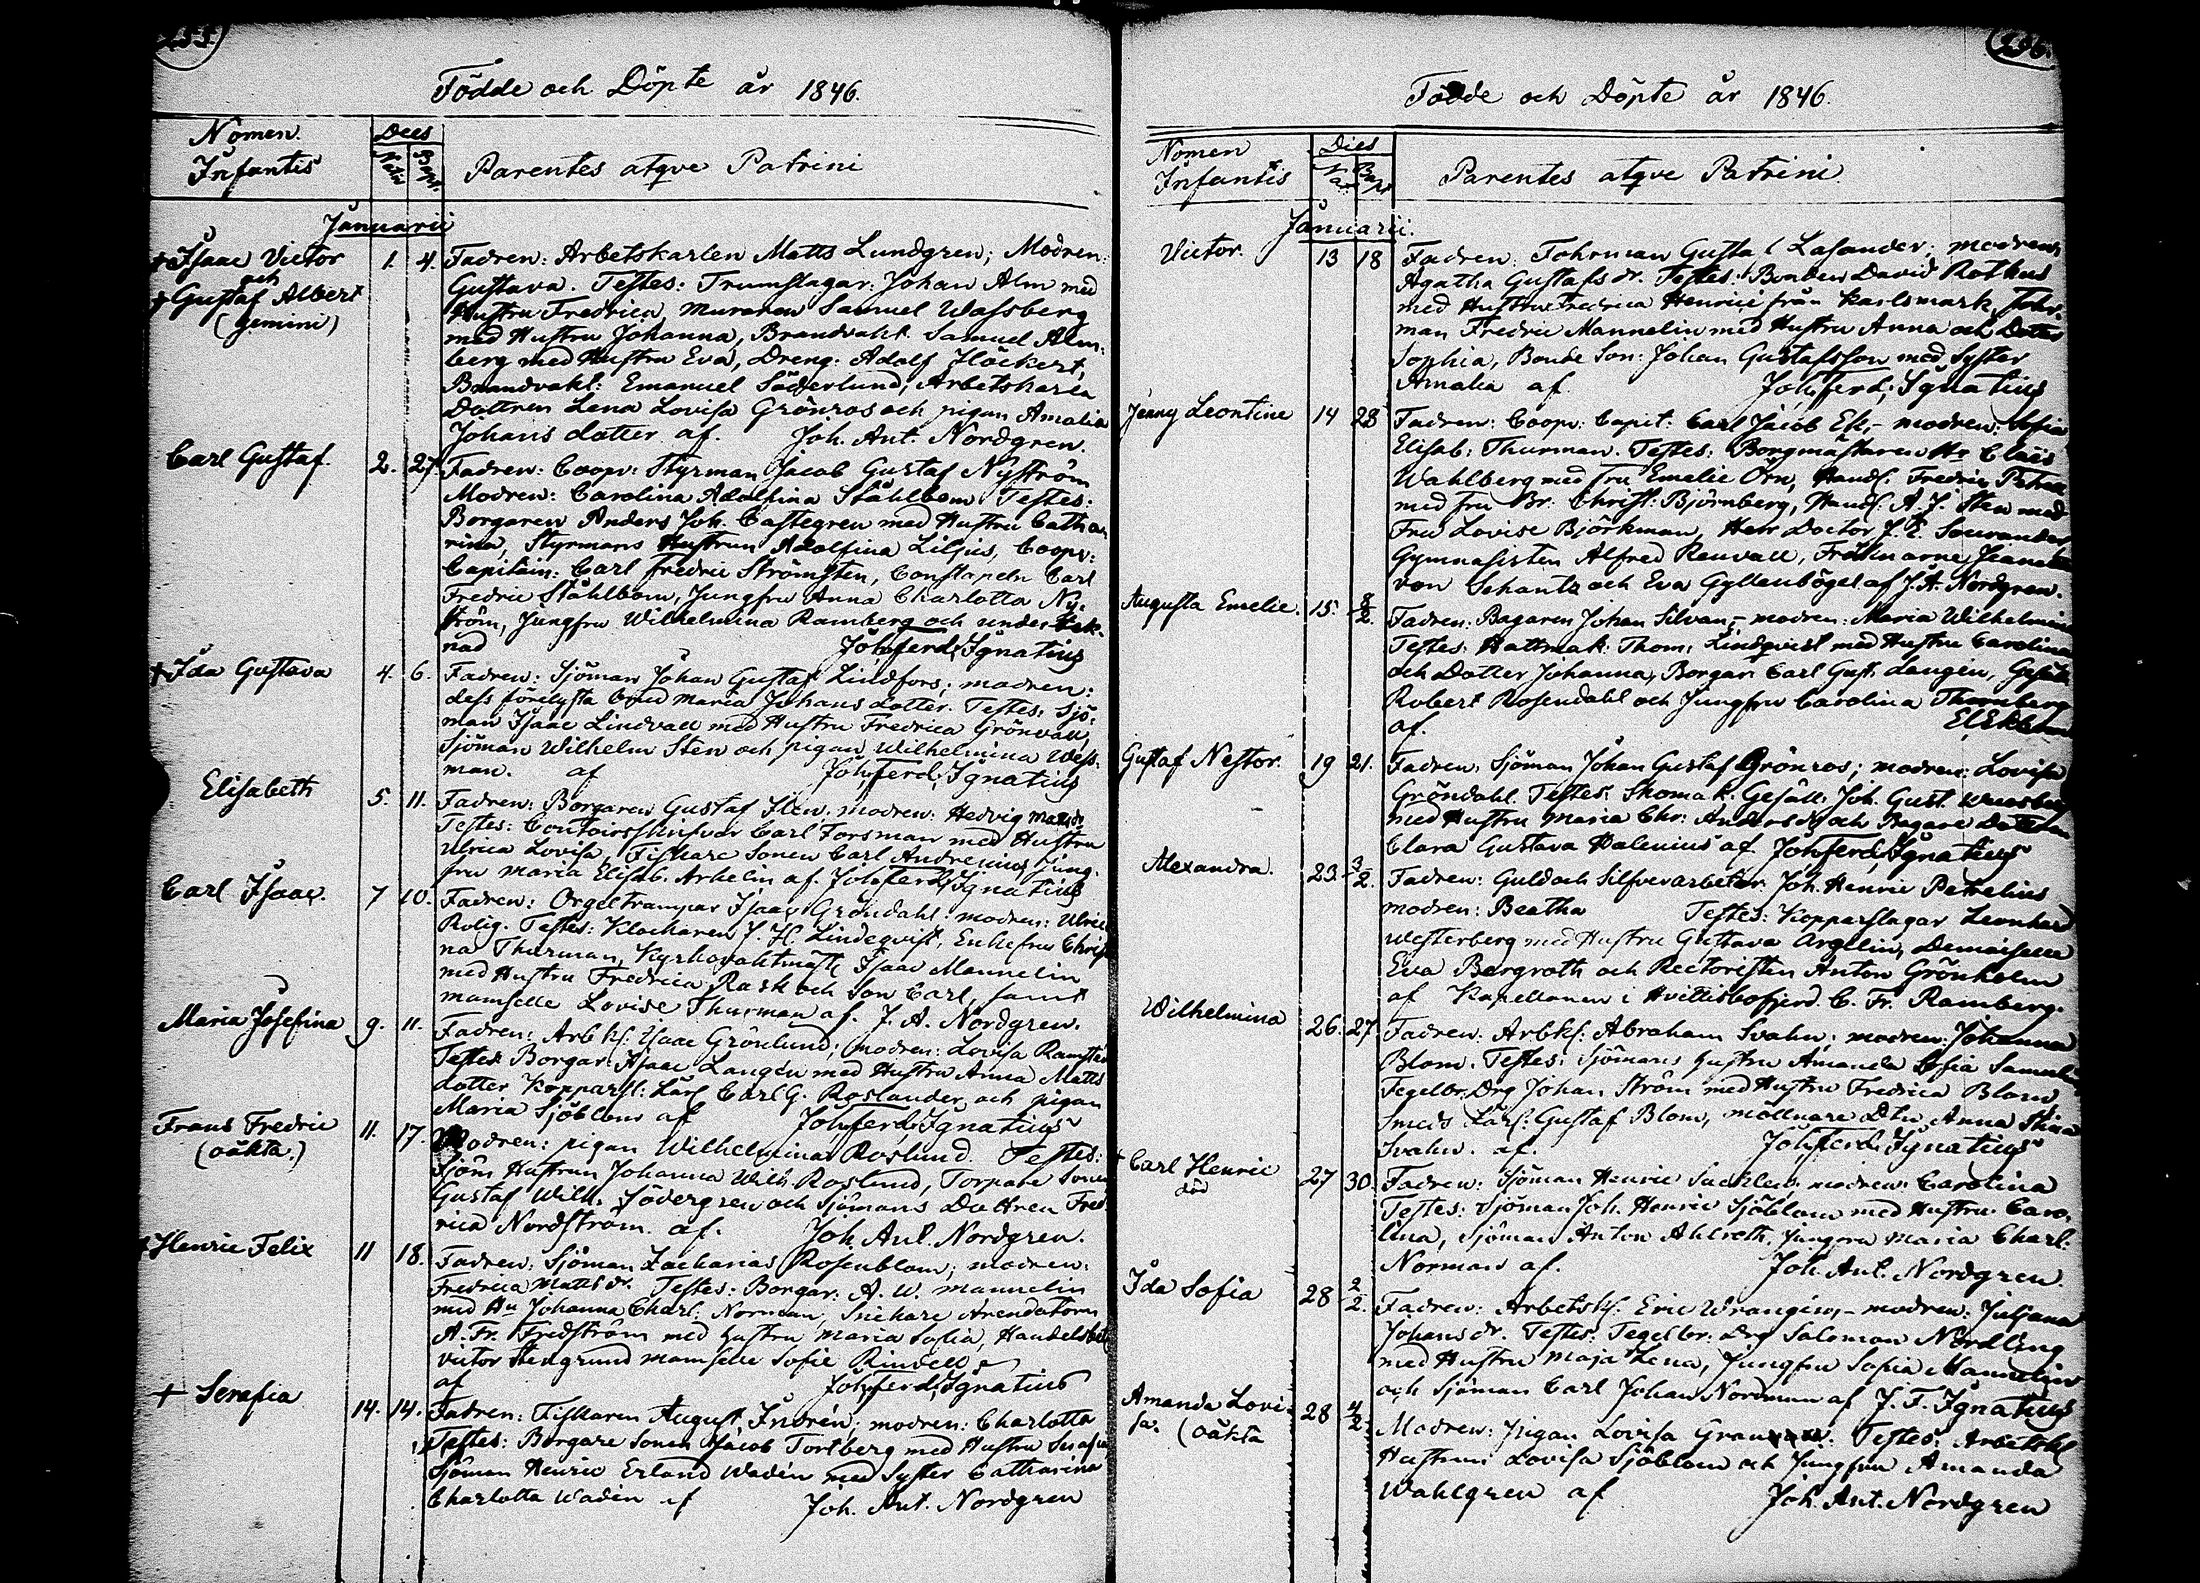 Födde och Döpte år 1846.
Nomen Infantis
Dies
Natus Bapt.
Parentes atqve Patrini
Januarii
+ Isaac Victor 1. 4. Fadren: Arbetskarlen Matts Lundgren; Modren:
och
+ Gustaf Albert Gustava. Testes: Trumslagar: Johan Alm med
(gemini) Hustru Fredrica, muraren Samuel Wassberg
med Hustru Johanna, Brandvakt. Samuel Alm-
berg med Hustru Eva, Dreng: Adolf Flöckert,
Brandvakt: Emanuel Söderlund, Arbetskarls
Dottren Lena Lovisa Grönros och pigan Amalia
Johans dotter af. Joh. Ant. Nordgren.
Carl Gustaf. 2. 27. Fadren: Coopv: Styrman Jacob Gustaf Nyström
Modren: Carolina Adolfina Ståhlbom Testes:
Borgaren Anders Joh. Castegren med Hustru Catha
rina, Styrmans Hustrun Adolfina Liljus, Coopv:
Capitain: Carl Fredric Strömsten, Constapeln Carl
Fredric Ståhlbom, Jungfru Anna Charlotta Ny-
ström, Jungfru Wilhelmina Ramberg och underteck-
nad Joh. Ferd. Ignatius
+ Ida Gustava 4. 6. Fadren: Sjöman Johan Gustaf Lindfors; modren:
dess förelysta Brud Maria Johans dotter. Testes: Sjö-
man Isaac Lindvall med Hustru Fredrica Grönvall,
Sjöman Wilhelm Sten och pigan Wilhelmina Wess-
man. af Joh. Ferd. Ignatius
Elisabeth 5. 11. Fadren: Borgaren Gustaf Sten, modren: Hedvig Mattsdr
Testes: Contoirsskrifvar Carl Forsman med Hustru
Ulrica Lovisa, Fiskare Sonen Carl Andrenius, Jung-
fru Maria Elisab. Arhelin af. Joh. Ferd. Ignatius
Carl Isaac. 7 10. Fadren: Orgeltrampar Isaac Gröndahl modren: Ulrica
Rolig. Testes: Klockaren J. H. Lindeqvist, Enkefru Christi
na Thurman, Kyrkovaktmäst. Isaac Mannelin
med Hustru Fredrica Rask och Son Carl, samt
mamselle Lovise Thurman af. J. A. Nordgren.
Maria Josefina 9. 11. Fadren: Arb.k. Isaac Grönlund; modren: Lovisa Ramstén
Testes Borgar: Isaac Langén med Hustru Anna Matts
dotter Kopparsl: Lärl Carl G. Roslander och pigan
Maria Sjöblom af Joh. Ferd. Ignatius
Frans Fredric 11. 17. Modren: pigan Wilhelmina Roslund. Testes:
(oäkta.) Sjöm Hustrun Johanna Wilh. Roslund, Torpare Sonen
Gustaf Wilh. Södergren och Sjömans Dottren Fred
rica Nordström. af. Joh Ant. Nordgren.
+ Henric Felix 11 18. Fadren: Sjöman Zacharias Rosenblom; modren:
Fredrica Matts dr. Testes: Borgar: A. W. Mannelin
med Hu Johanna Charl: Norman, Snickare Arendatorn
A. Fr. Fredström med Hustru Maria Sofia, Handelsbetj
Victor Stengrund mamselle Sofie Rindell
af Joh. Ferd. Ignatius
+ Serafia 14. 14. Fadren: Fiskaren August Indrén; modren: Charlotta
Testes: Borgare Sonen Jacob Tortberg med Hustru Serafia
Sjöman Henric Erland Wadén med Syster Catharina
Charlotta Wadén af Joh. Ant. Nordgren
Födde och Döpte år 1846.
Nomen Infantis
Dies
Parentes atqve Patrini
Januarii.
Victor. 13 18 Fadren: Fohrman Gustaf Lasander; modren:
Agatha Gustafs dr. Testes: Bonden David Rothus
med Hustru Fredrica Henrici från Karlsmark, Fohr-
man Fredric Mannelin med Hustru Anna och Dotter
Sophia, Bonde Son: Johan Gustafsson med Syster
Amalia af Joh. Ferd. Ignatius
Jenny Leontine 14 28 Fadren: Coopv: Capit: Carl Jacob Ek,- modren: Sofia
Elisab: Thurman. Testes: Borgmästaren Hr Claës
Wahlberg med Fru Emelie Örn, Handl. Fredric
med fru Br. Christ: Björnberg, Handl: A. J. Sten med
Fru Lovise Björkman, Herr Doctor J. E. Sourander
Gymnasisten Alfred Renvall, Fröknarne Jeanette
von Schantz och Eva Gyllenbögel af J. A. Nordgren.
Augusta Emelie. 15. 8/2. Fadren: Bagaren Johan Silvan,- modren: Maria Wilhelmina
Testes: Hattmak: Thom: Lindqvist med Hustru Carolina
och Dotter Johanna, Borgar: Carl Gust. Langén, Gesäll
Robert Rosendahl och Jungfru Carolina Thornberg
af.
Gustaf Nestor. 19 21. Fadren: Sjöman Johan Gustaf Grönros; modren: Lovisa
Gröndahl. Testes: Skomak: Gesäll: Joh. Gust.
med Hustru Maria Chr: Andersdr och Bagare Dottren
Clara Gustava Walenius af Joh. Ferd. Ignatius
Alexandra. 23. 3/2. Fadren: Guld och Silfverarbetar Joh. Henric Petrelius
modren: Beatha Testes: Kopparslagar Leonhard
Westerberg med Hustru Gustava Argelin, Demoiselle
Eva Bergroth och Rectoristen Anton Grönholm
af Kapellanen i Hvittisbofjerd. C. Fr. Ramberg.
Wilhelmina 26. 27. Fadren: Arbks. Abraham Svahn; modren: Johanna
Blom. Testes: Sjömans Hustru Amanda Sofia
Tegelbr. Drg Johan Ström med Hustru Fredrica Blom
Smeds Lärl: Gustaf Blom, möllnare Dtr. Anna Stina
Svahn. af. Joh. Ferd. Ignatius
+ Carl Henric 27 30. Fadren: Sjöman Henric modren: Carolina
död Testes: Sjöman Joh. Henric Sjöblom med Hustru Caro-
lina, Sjöman Anton Ahlroth, Jungfru Maria Charl:
Norman af. Joh. Ant. Nordgren.
Ida Sofia 28 2/2. Fadren: Arbetsk. Eric Wrangén,- modren: Juljana
Johans dr. Testes: Tegelbr: Drg Salomon Nordling
med Hustru Maja Lena, Jungfru Sofia Mannelin
och Sjöman Carl Johan Nordman af J. F. Ignatius
Amanda Lovi- 28 4/2. Modren: Pigan Lovisa Testes: Arbetsk
sa. (oäkta Hustrun Lovisa Sjöblom och Jungfru Amanda
Wahlgren af Joh. Ant. Nordgren